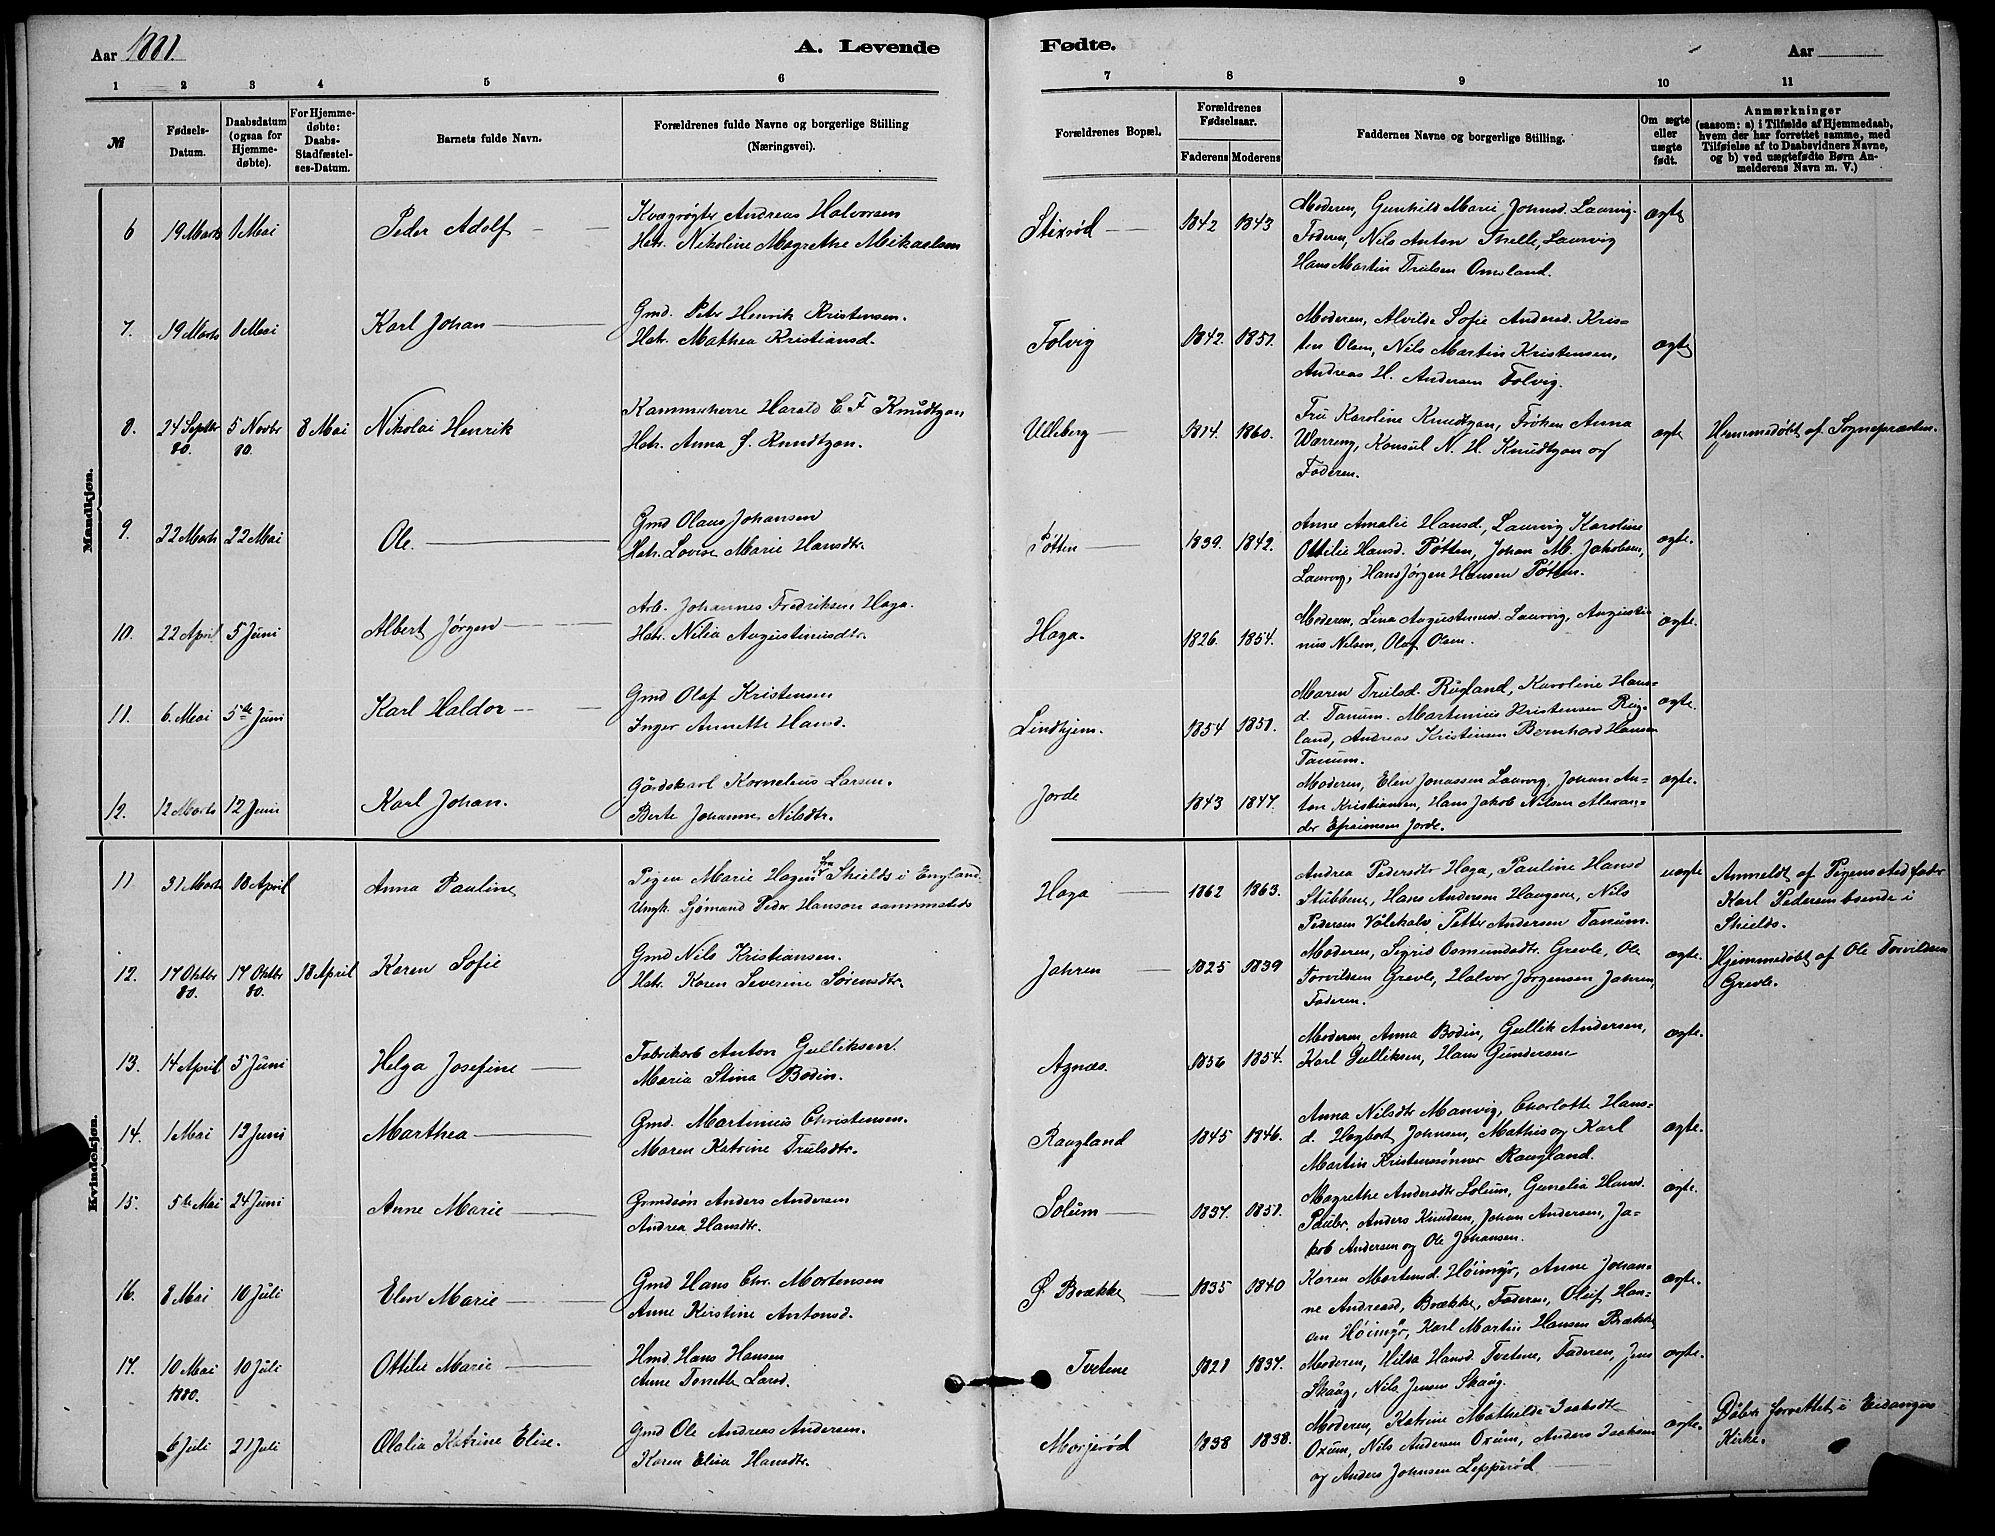 Aar 1881.
A. Levende
Fødte.
Aar
1 2 3 4 5 6 7 8 9 10 11
№
Fødsels-Datum.
Daabsdatum (ogsaa for Hjemmedøbte).
For Hjemmedøbte: Daabs-Stadfæstelses-Datum.
Barnets fulde Navn.
Forældrenes fulde Navne og borgerlige Stilling (Næringsvei).
Forældrenes Bopæl.
Forældrenes Fødselsaar.
Faderens Moderens
Faddernes Navne og borgerlige Stilling.
Om ægte eller uægte født.
Anmærkninger
(saasom: a) i Tilfælde af Hjemmedaab, hvem der har forrettet samme, med Tilføielse af to Daabsvidners Navne, og b) ved uægtefødte Børn Anmelderens Navn m. V.)
Mandkjøn.
6 19 Marts 8 Mai Peder Adolf
Kvægrøgter Andreas Halvorsen
Hstr. Nikoline Magrethe Mikaelsen
Stixrød 1842 1843
Moderen, Gunhild Marie Johnsd. Laurvig.
Faderen, Nils Anton Thelle, Laurvig
Hans Martin Trulsen Omsland.
ægte
7. 19 Marts 8 Mai Karl Johan
Gmd. Peter Henrik Kristensen.
Hstr. Mathea Kristiansd.
Folvig 1842. 1851.
Moderen, Alvilde Sofie Andersd. Kris-
ten Olsen, Nils Martin Kristensen,
Andreas H. Andersen Folvig.
ægte
8. 24 Septbr 80. 5 Novbr 80. 8 Mai Nikolai Henrik
Kammerherre Harald C F Knudtzon
Hstr. Anna J. Knudtzon.
Ulleberg 1814. 1860.
Fru Karoline Knudtzon, Frøken Anna
Warreng, Konsul N. H. Knudtzon og
Faderen.
ægte
Hjemmedøbt af Sognepræsten.
9. 22 Marts 22 Mai Ole.
Gmd Olaus Johansen
Hstr. Lovise Marie Hansdtr.
Pøtten 1839. 1842.
Anne Amalie Hansd., Laurvig Karoline
Ottilie Hansd. Pøtten, Johan M. Jakobsen,
Laurvig, Hans Jørgen Hansen Pøtten.
ægte.
10. 22 April 5 Juni Albert Jørgen
Arb. Johannes Fredriksen Haga.
Hstr. Nilia Augustinusdtr.
Haga. 1826. 1854.
Moderen, Lina Augustinusd. Laurvig, Augusti-
nus Nilsen, Olaf Olsen.
ægte.
11. 6. Mai 5te Juni Karl Haldor
Gmd Olaf Kristensen
Inger Annette Hansd.
Lindhjem. 1854 1851.
Maren Trulsd. Rugland, Karoline Hans-
d. Tanum. Martinius Kristensen Rug-
land, Andreas Kristensen Bernhard Hansen
Tanum.
ægte.
12. 12 Marts 12 Juni Karl Johan.
Gårdskarl Kornelius Larsen.
Berte Johanne Nilsdtr.
Jorde 1843 1847.
Moderen, Elen Jonassen Laurvig, Johan An-
ton Kristiansen, Hans Jakob Nilsen Alexan-
der Efraimsen Jorde.
ægte.
Kvindekjøn.
11 31 Marts 18 April Anna Pauline
Pigen Marie Hagen fra Shields i England.
Ungk. Sjømand Peder Hanson sammesteds
Haga 1862 1863.
Andrea Pedersdtr Haga, Pauline Hansd
Stubbene, Hans Andersen Haugene, Nils
Pedersen Vålekalv Petter Andersen Tanum.
uægte
Anmeldt af Pigens Stedfader
Karl Pedersen boende i
Shields.
12. 17 Oktbr 80. 17 Oktbr 80. 18 April Karen Sofie
Gmd Nils Kristiansen.
Hstr. Karen Severine Sørensdtr.
Jahren 1825 1839
Moderen, Sigrid Osmundsdtr. Grevle, Ole
Torvildsen Grevle, Halvor Jørgensen Jahren,
Faderen.
ægte.
Hjemmedøbt af Ole Torvildsen
Grevle.
13. 14 April 5 Juni Helga Josefine
Fabrikarb Anton Gulliksen.
Maria Stina Bodin.
Agnæs. 1856 1854.
Moderen Anna Bodin, Gullik Andersen,
Karl Gulliksen, Hans Gundersen
ægte.
14. 1 Mai 12 Juni Marthea
Gmd. Martinius Christensen.
Maren Katrine Trulsdtr.
Raugland 1845 1846.
Anna Nilsdtr Manvig, Charlotte Hans-
d. Hogbert Johnsen, Mathis og Karl
Martin Kristensønner Raugland.
ægte.
15. 5te Mai 24 Juni Anne Marie
Grmdsøn Anders Andersen
Andrea Hansdtr.
Solum 1837. 1851.
Magrethe Andersdtr Solum, Gunelia Hansd.
Paulsr. Anders Knudsen, Johan Andersen, Ja-
kob Andersen og Ole Johansen.
ægte.
16. 8 Mai 10 Juli Elen Marie
Gmd Hans Chr. Mortensen
Anne Kirstine Antonsd.
Ø Brække 1835 1840
Karen Mortensd. Høimyr, Anne Johan-
ne Andreasd, Brække, Faderen, Oluf Han-
sen Høimyr, Karl Martin Hansen Brække
ægte.
17. 10 Mai 1880. 10 Juli Ottilie Marie
Hmd. Hans Hansen
Anne Tonette Larsd.
Tvetene 1828 1837.
Moderen, Hilda Hansd. Tvetene, Faderen, Jens
Skaug, Nils Jensen Skaug.
ægte.
6 Juli 21 Juli Olalia Katrine Elise.
Gmd Ole Andreas Andersen.
Karen Elisa Hansdtr.
Morjerød 1838 1838.
Moderen, Katrine Mathilde Isaksdtr
Oxum, Nils Andersen Oxum, Anders Isaksen
og Anders Johnsen Lepperød
ægte.
Dåben forrettet i Eidangers
Kirke.